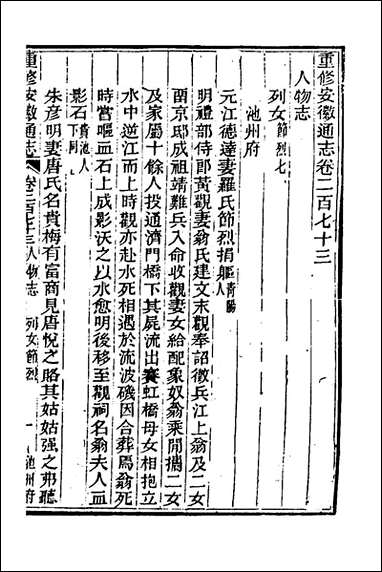 重修安徽通志卷二百七十三
人物志
列女節烈七
池州府
元江德達妻羅氏節烈捐軀青陽人
明禮部侍郎黃觀妻翁氏建文末觀奉詔徵兵江上翁及二女
畱京邸成祖靖難兵入命收觀妻女給配象奴翁乘閒攜二女
及家屬十餘人投通濟門橋下其屍流出賽虹橋母女相抱立
水中逆江而上時觀亦赴水死相遇於流波磯因合葬焉翁死
時嘔血石上成影沃之以水愈明後移至觀祠名翁夫人血
影石貴池人下同
朱彥明妻唐氏名貴梅有富商見唐悅之賂其姑姑强之弗聽
重修安徽通志 卷二百七十三 人物志 列女節烈 一 池州府